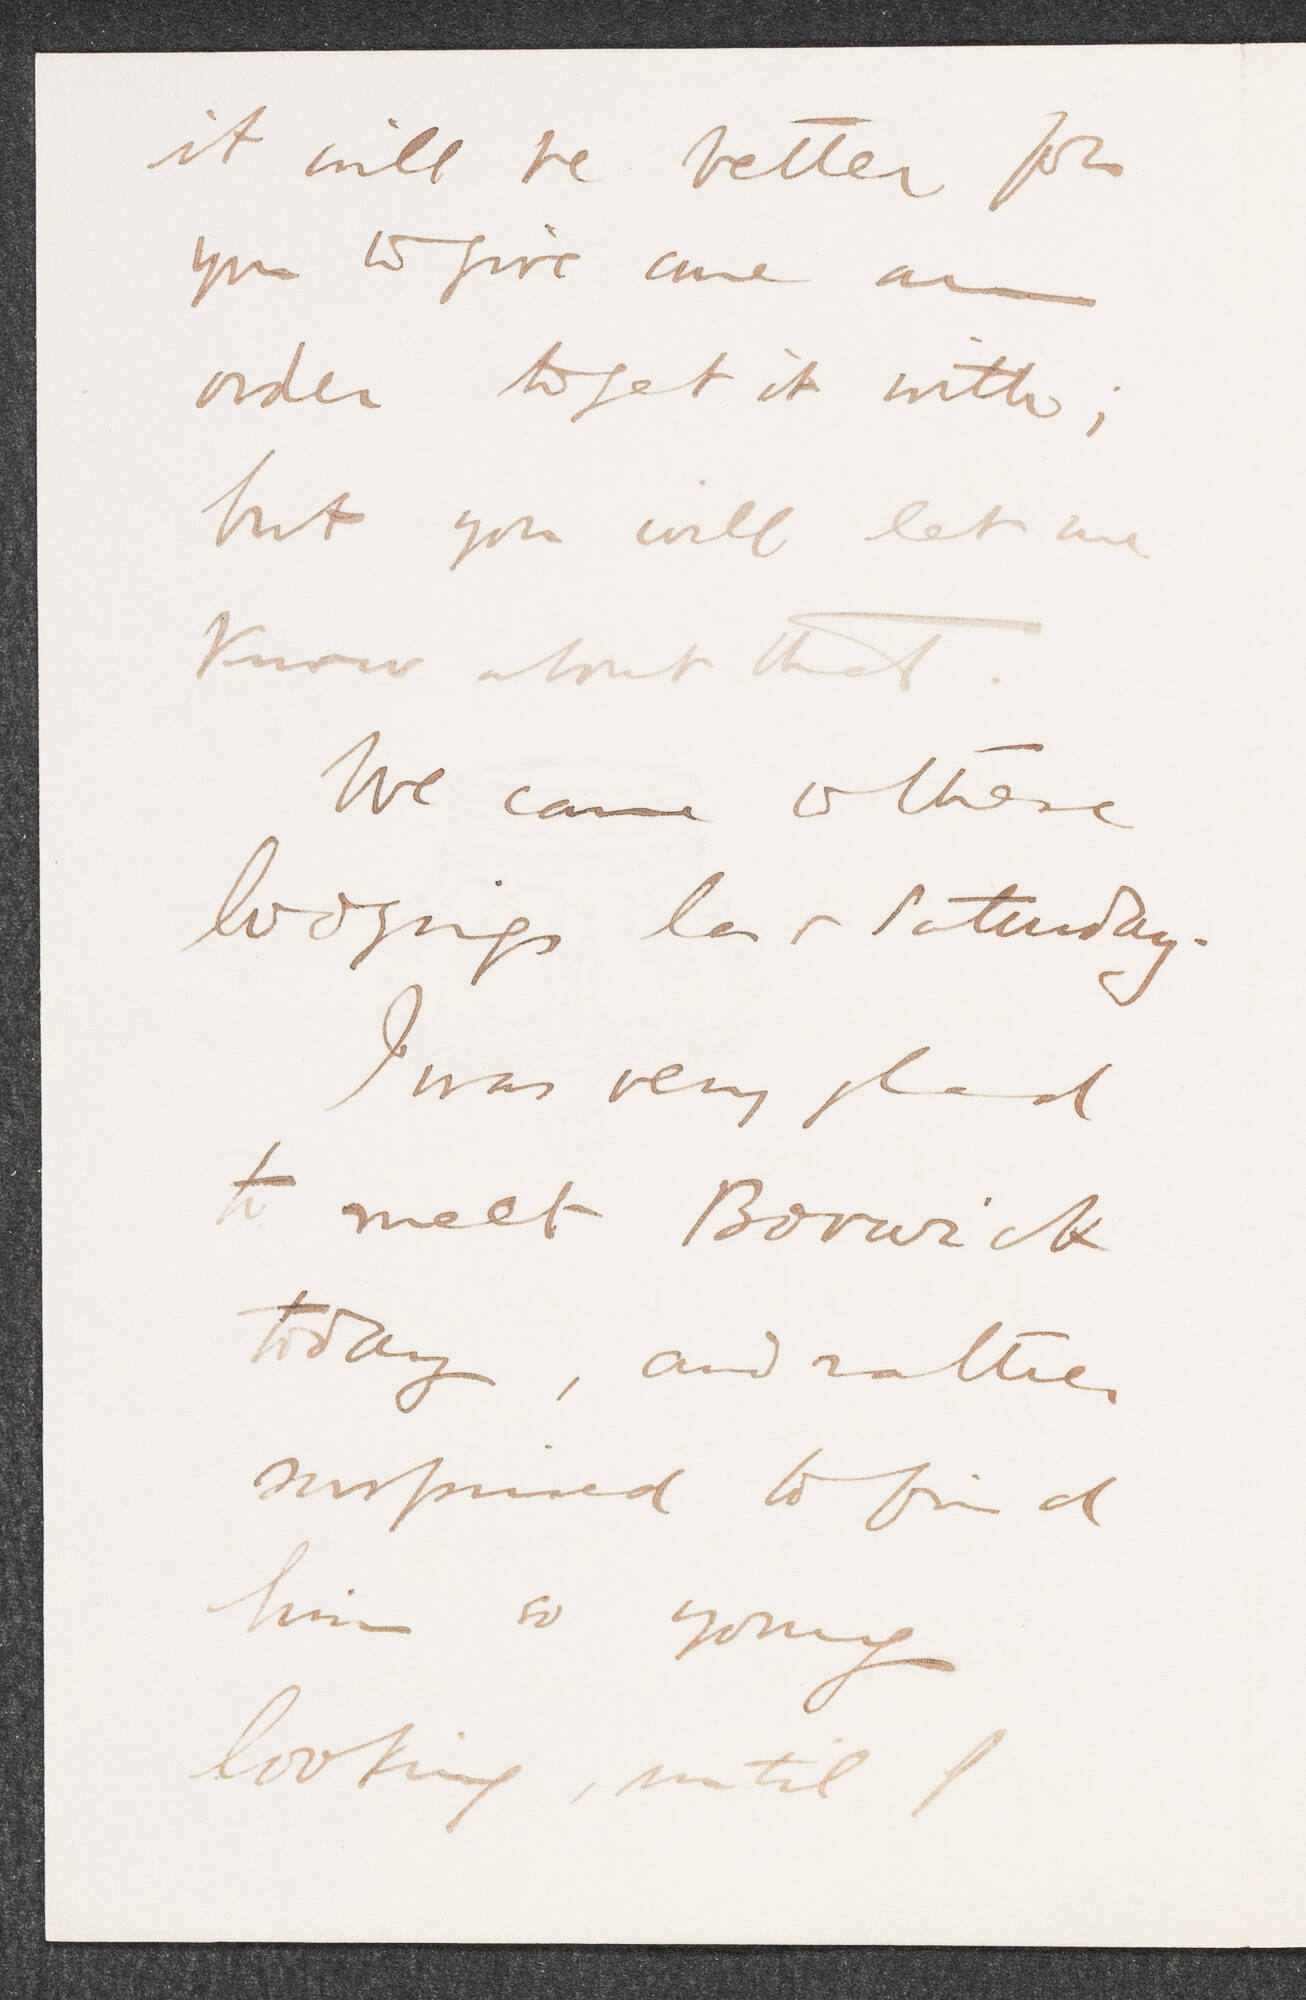 it will be better for
you to give me an
order to get it with;
but you will let me
know about that.
We came to these
lodgings last Saturday.
I was very glad
to meet Borwick
today, and rather
surprised to find
him so young
looking, until I